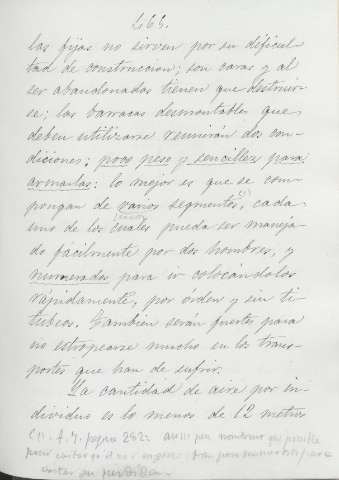 466.
las fijas no sirven por su dificul-
tad de construccion; son caras y al
ser abandonadas tienen que destruir-
se; las barracas desmontables que
deben utilizarse reunirán dos con-
diciones: poco peso y sencillez para
armarlas: lo mejor es que se com-
pongan de varios segmentos, cada
uno de los cuales pueda ser maneja-
do fácilmente por dos hombres, y
numerados para ir colocándolos
rápidamente, por órden y sin ti-
tubeos. Tambien serán fuertes para
no estropearse mucho en los trans-
portes que han de sufrir.
La cantidad de aire por in-
dividuo es lo menos de 12 metros
(1)
para evitar